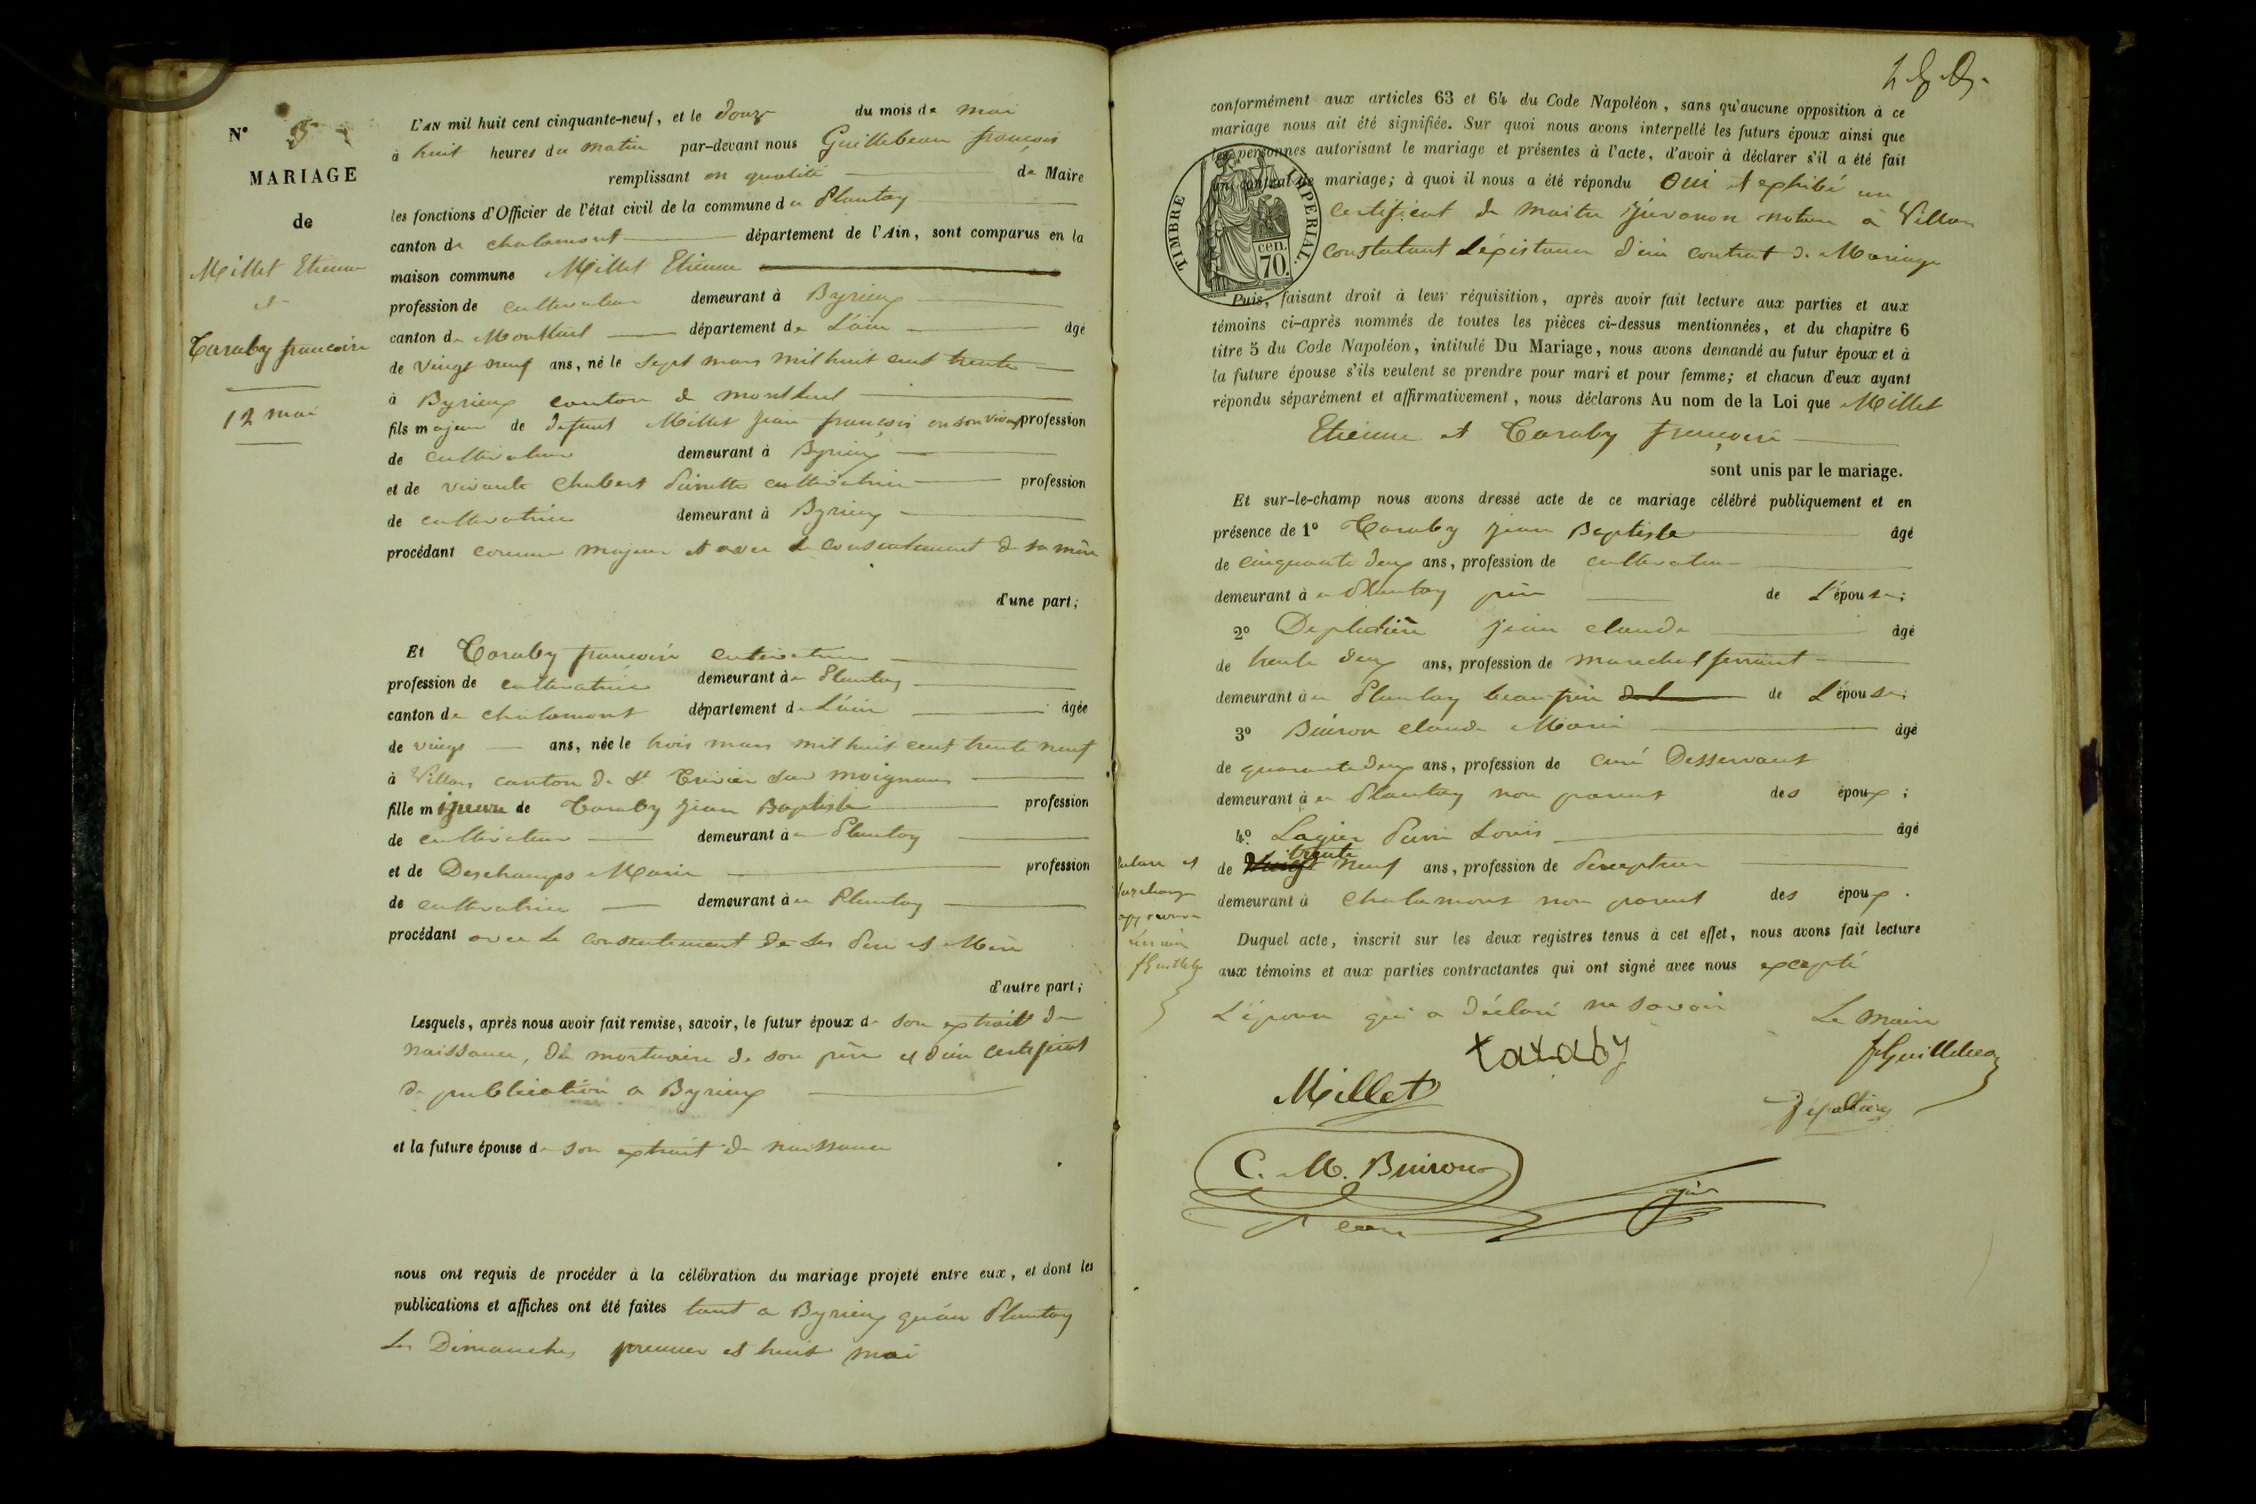 N° 5
MARIAGE
de
Millet Etienne
et
Taraby françoise
12 mai
L'AN mil huit cent cinquante-neuf, et le douze du mois de mai
à huit heures du matin par-devant nous Guillebeau françois
remplissant en qualité de Maire
les fonctions d'Officier de l'état civil de la commune du Plantay
canton de chalamont département de l'Ain, sont comparus en la
maison commune Millet Etienne
profession de cultivateur demeurant à Byrieux
canton de Montluel département de L'ain âgé
de vingt neuf ans, né le sept mars mil huit cent trente
à Byrieux canton de montluel
fils majeur de defunt Millet jean françois en son vivant profession
de cultivateur demeurant à Byrieux
et de vivante Chabert Pierrette cultivatrice profession
de cultivatrice demeurant à Byrieux
procédant comme majeur et avec le consentement de sa mère
d'une part;
Et Taraby françoise cultivatrice
profession de cultivatrice demeurant au Plantay
canton de chalamont département de L'ain âgée
de vingt ans, née le trois mars mil huit cent trente neuf
à Villars canton de St Trivier sur moignans
fille mineure de Taraby jean Baptiste profession
de cultivateur demeurant au Plantay
et de Deschamps Marie profession
de cultivatrice demeurant au Plantay
procédant avec le consentement de ses Père et Mère
d'autre part;
Lesquels, après nous avoir fait remise, savoir, le futur époux de son extrait de
naissance, du mortuaire de son père et d'un certificat
de publication a Byrieux
et la future épouse de son extrait de naissance
nous ont requis de procéder à la célébration du mariage projeté entre eux, et dont les
publications et affiches ont été faites tant a Byrieux qu'au Plantay
les Dimanches premier et huit mai
conformément aux articles 63 et 64 du Code Napoléon, sans qu'aucune opposition à ce
mariage nous ait été signifiée. Sur quoi nous avons interpellé les futurs époux ainsi que
les personnes autorisant le mariage et présentes à l'acte, d'avoir à déclarer s'il a été fait
un contrat de mariage; à quoi il nous a été répondu Oui et exhibé un
certificat de maitre juvanon notaire à Villars
constatant l'existence d'un contrat de Mariage
TIMBRE IMPERIAL.
70 cen.
Puis, faisant droit à leur réquisition, après avoir fait lecture aux parties et aux
témoins ci-après nommés de toutes les pièces ci-dessus mentionnées, et du chapitre 6
titre 5 du Code Napoléon, intitulé Du Mariage, nous avons demandé au futur époux et à
la future épouse s'ils veulent se prendre pour mari et pour femme; et chacun d'eux ayant
répondu séparément et affirmativement, nous déclarons Au nom de la Loi que Millet
Etienne et Taraby françoise
sont unis par le mariage.
Et sur-le-champ nous avons dressé acte de ce mariage célébré publiquement et en
présence de 1° Taraby jean Baptiste âgé
de cinquante deux ans, profession de cultivateur
demeurant à u Plantay père de L'épouse;
2° jean claude âgé
de trente deux ans, profession de marechal ferrant
demeurant à u Plantay beau frère de L'épouse;
3° Buiron claude Marie âgé
de quarante deux ans, profession de curé Desservant
demeurant à u Plantay non parent des époux;
4° Lagier Pierre Louis âgé
de trente neuf ans, profession de percepteur
demeurant à Chalamont non parent des époux.
Duquel acte, inscrit sur les deux registres tenus à cet effet, nous avons fait lecture
aux témoins et aux parties contractantes qui ont signé avec nous excepté
L'épouse qui a déclaré ne savoir
Le maire
taraby
fGuillebeau
Millet
C. M. Buiron